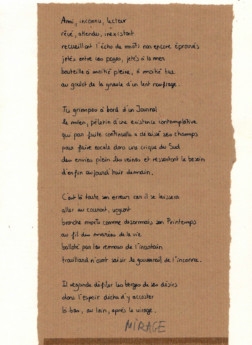 Ami, inconnu, lecteur
rêvé, attendu, inexistant
recueillant l'écho de mots non encore éprouvés
jetés entre les pages, jetés à la mer
bouteille à moitié pleine, à moitié bue
au goulot de la gueule d'un lent naufrage.
Tu grimpes à bord d'un Journal
de mien, pèlerin d'une existence contemplative
qui par faute a laissé ses champs
pour faire escale dans une crique du Sud
des envies plein les veines et ressentant le besoin
d'enfin aujourd'hui demain.
C'est là toute son erreur, car il se laissera
aller au courant, voguant
mots comme désormais son Printemps
au fil des marées de la vie
balloté par les remous de l'incertain
n'ont saisir le gouvernail de l'inconnu.
Il regarde défiler les berges de ses désirs
dans l'espoir d'y accoster
là-bas, au loin, après le virage.
MIRAGE